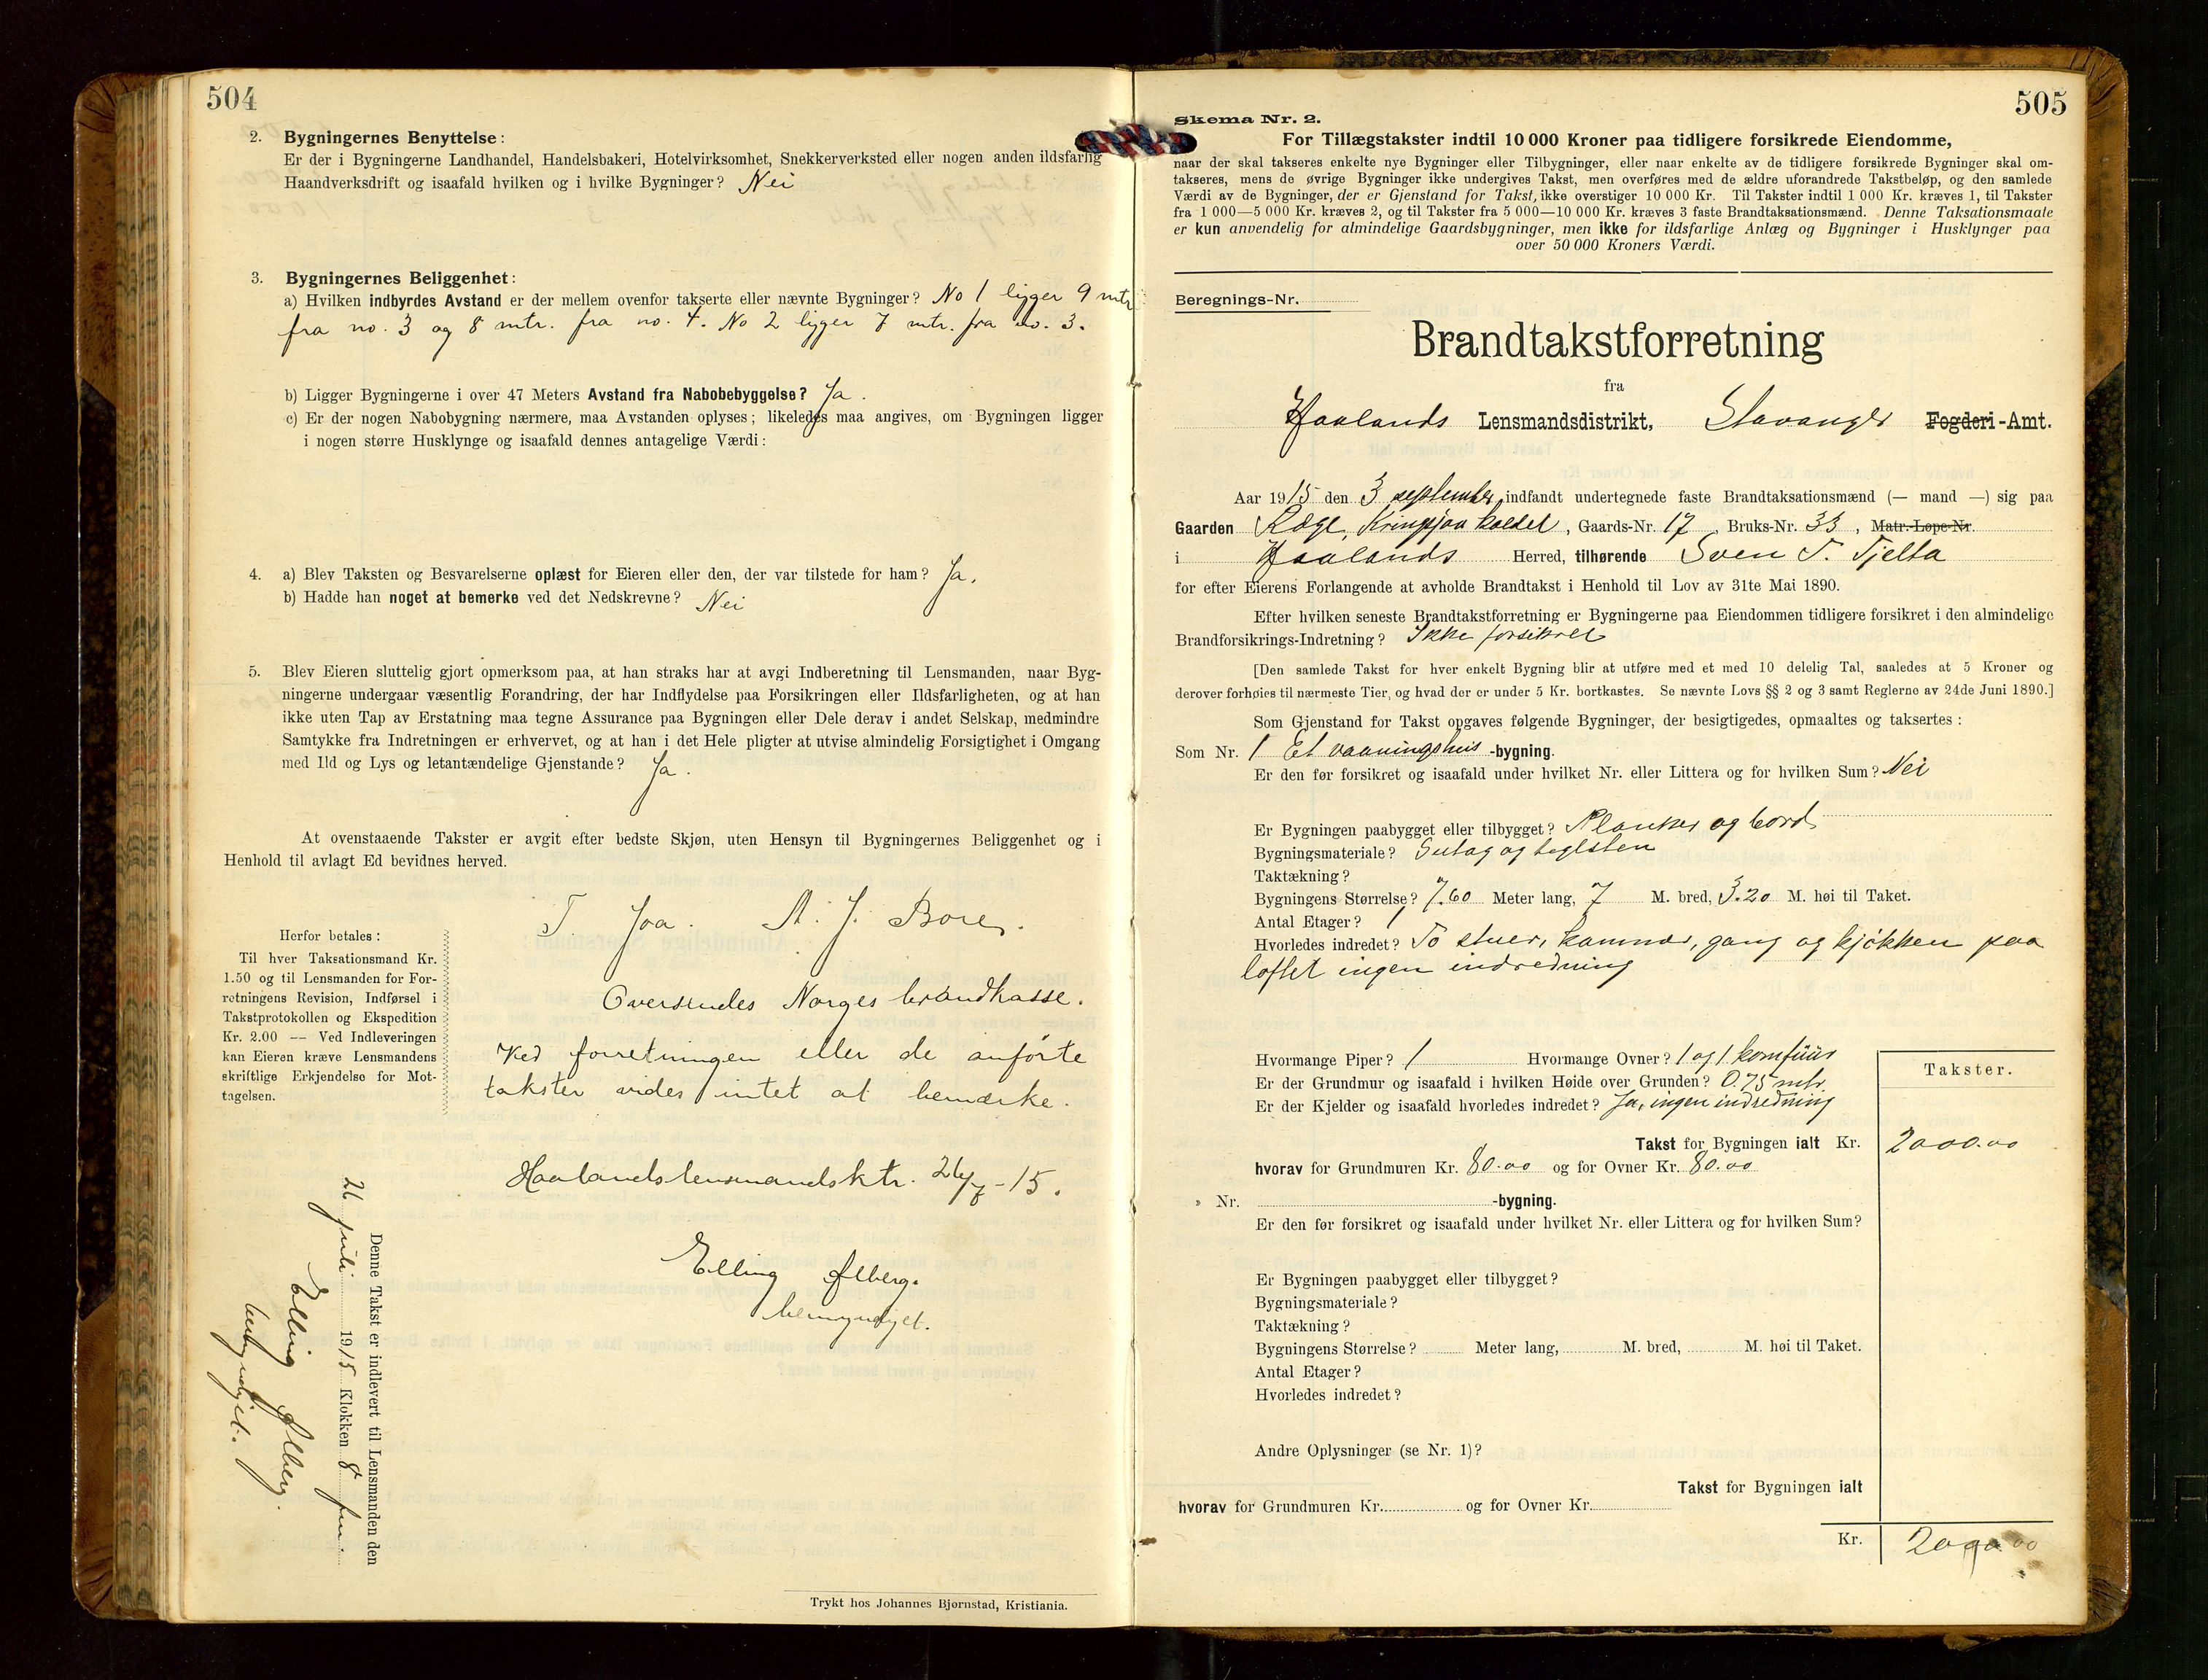 504
2. Bygningernes Benyttelse:
Er der i Bygningerne Landhandel, Handelsbakeri, Hotelvirksomhet, Snekkerverksted eller nogen anden ildsfarlig
Haandverksdrift og isaafald hvilken og i hvilke Bygninger? Nei
3. Bygningernes Beliggenhet:
a) Hvilken indbyrdes Avstand er der mellem ovenfor takserte eller nævnte Bygninger? No 1 ligger 9 mtr
fra no. 3 og 8 mtr. fra no. 4. No 2 ligger 7 mtr. fra no. 3.
b) Ligger Bygningerne i over 47 Meters Avstand fra Nabobebyggelse? Ja.
c) Er der nogen Nabobygning nærmere, maa Avstanden oplyses; likeledes maa angives, om Bygningen ligger
i nogen større Husklynge og isaafald dennes antagelige Værdi:
4. a) Blev Taksten og Besvarelserne oplæst for Eieren eller den, der var tilstede for ham? Ja.
b) Hadde han noget at bemerke ved det Nedskrevne? Nei
5. Blev Eieren sluttelig gjort opmerksom paa, at han straks har at avgi Indberetning til Lensmanden, naar Byg-
ningerne undergaar væsentlig Forandring, der har Indflydelse paa Forsikringen eller Ildsfarligheten, og at han
ikke uten Tap av Erstatning maa tegne Assurance paa Bygningen eller Dele derav i andet Selskap, medmindre
Samtykke fra Indretningen er erhvervet, og at han i det Hele pligter at utvise almindelig Forsigtighet i Omgang
med Ild og Lys og letantændelige Gjenstande? Ja.
At ovenstaaende Takster er avgit efter bedste Skjøn, uten Hensyn til Bygningernes Beliggenhet og i
Henhold til avlagt Ed bevidnes herved.
T. Joa. A. J. Bore.
Herfor betales:
Til hver Taksationsmand Kr.
1.50 og til Lensmanden for For-
retningens Revision, Indførsel i
Takstprotokollen og Ekspedition
Kr. 2.00 — Ved Indleveringen
kan Eieren kræve Lensmandens
skriftlige Erkjendelse for Mot-
tagelsen.
Oversendes Norges brandkasse.
Ved forretningen eller de anførte
takster vides intet at bemærke.
Haalands lensmandsktr. 26/7-15.
Elling Ølberg.
bemyndiget.
Denne Takst er indlevert til Lensmanden den
26 juli 1915 Klokken 8 fm.
Elling Ølberg.
bemyndiget.
Trykt hos Johannes Bjørnstad, Kristiania.
505
Skema Nr. 2.
For Tillægstakster indtil 10 000 Kroner paa tidligere forsikrede Eiendomme,
naar der skal takseres enkelte nye Bygninger eller Tilbygninger, eller naar enkelte av de tidligere forsikrede Bygninger skal om-
takseres, mens de øvrige Bygninger ikke undergives Takst, men overføres med de ældre uforandrede Takstbeløp, og den samlede
Værdi av de Bygninger, der er Gjenstand for Takst, ikke overstiger 10 000 Kr. Til Takster indtil 1 000 Kr. kræves 1, til Takster
fra 1 000—5 000 Kr. kræves 2, og til Takster fra 5 000—10 000 Kr. kræves 3 faste Brandtaksationsmænd. Denne Taksationsmaate
er kun anvendelig for almindelige Gaardsbygninger, men ikke for ildsfarlige Anlæg og Bygninger i Husklynger paa
over 50 000 Kroners Værdi.
Beregnings-Nr.
Brandtakstforretning
fra
Haalands Lensmandsdistrikt, Stavanger Fogderi-Amt.
Aar 1915 den 3 september indfandt undertegnede faste Brandtaksationsmænd (— mand —) sig paa
Gaarden Ræge, Kringsjaa kaldet, Gaards-Nr. 17, Bruks-Nr. 33, Matr.-Løpe-Nr.
i Haalands Herred, tilhørende Sven T. Tjelta
for efter Eierens Forlangende at avholde Brandtakst i Henhold til Lov av 31te Mai 1890.
Efter hvilken seneste Brandtakstforretning er Bygningerne paa Eiendommen tidligere forsikret i den almindelige
Brandforsikrings-Indretning? Ikke forsikret
[Den samlede Takst for hver enkelt Bygning blir at utføre med et med 10 delelig Tal, saaledes at 5 Kroner og
derover forhøies til nærmeste Tier, og hvad der er under 5 Kr. bortkastes. Se nævnte Lovs §§ 2 og 3 samt Reglerne av 24de Juni 1890.]
Som Gjenstand for Takst opgaves følgende Bygninger, der besigtigedes, opmaaltes og taksertes:
Som Nr. 1 Et vaaningshus -bygning.
Er den før forsikret og isaafald under hvilket Nr. eller Littera og for hvilken Sum? Nei
Er Bygningen paabygget eller tilbygget? Planker og bord
Bygningsmateriale? Sutag og teglsten
Taktækning?
Bygningens Størrelse? 7.60 Meter lang, 7 M. bred, 3.20 M. høi til Taket.
Antal Etager? 1
Hvorledes indredet? To stuer, kammer, gang og kjøkken paa
loftet ingen indredning
Hvormange Piper? 1 Hvormange Ovner? 1 og 1 komfüür
Er der Grundmur og isaafald i hvilken Høide over Grunden? 0.75 mtr.
Er der Kjelder og isaafald hvorledes indredet? Ja, ingen indredning
Takster.
Takst for Bygningen ialt Kr. 2000.00
hvorav for Grundmuren Kr. 80.00 og for Ovner Kr. 80.00
" Nr. -bygning.
Er den før forsikret og isaafald under hvilket Nr. eller Littera og for hvilken Sum?
Er Bygningen paabygget eller tilbygget?
Bygningsmateriale?
Taktækning?
Bygningens Størrelse? Meter lang, M. bred, M. høi til Taket.
Antal Etager?
Hvorledes indredet?
Andre Oplysninger (se Nr. 1)?
Takst for Bygningen ialt
hvorav for Grundmuren Kr. og for Ovner Kr.
Kr. 2000.00